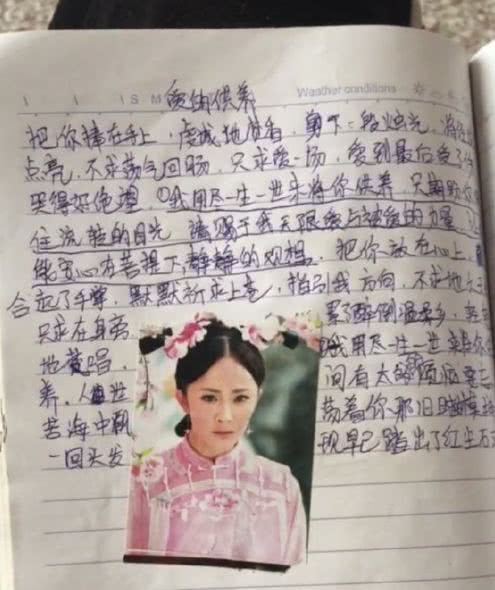 S M Weather conditions
爱的供养
把你捧在手上，虔诚地焚香，剪下一段烛光，将
点亮，不求荡气回肠，只求爱一场，爱到最后受了
哭得好绝望，我用尽一生一世来将你供养，只期盼你
住流转的目光，请赐于我无限爱与被爱的力量，让
能安心在菩提下静静的观想。把你放在心上，
合起了手掌，默默祈求上苍，指引我方向，不求地久
只求在身旁 累了醉倒温柔乡，轻
地梵唱， 我用尽一生一世来将你
养，人世 间有太多烦恼要忘
苦海中飘 荡着你那旧时模样
一回头发 现早已踏出了红尘万